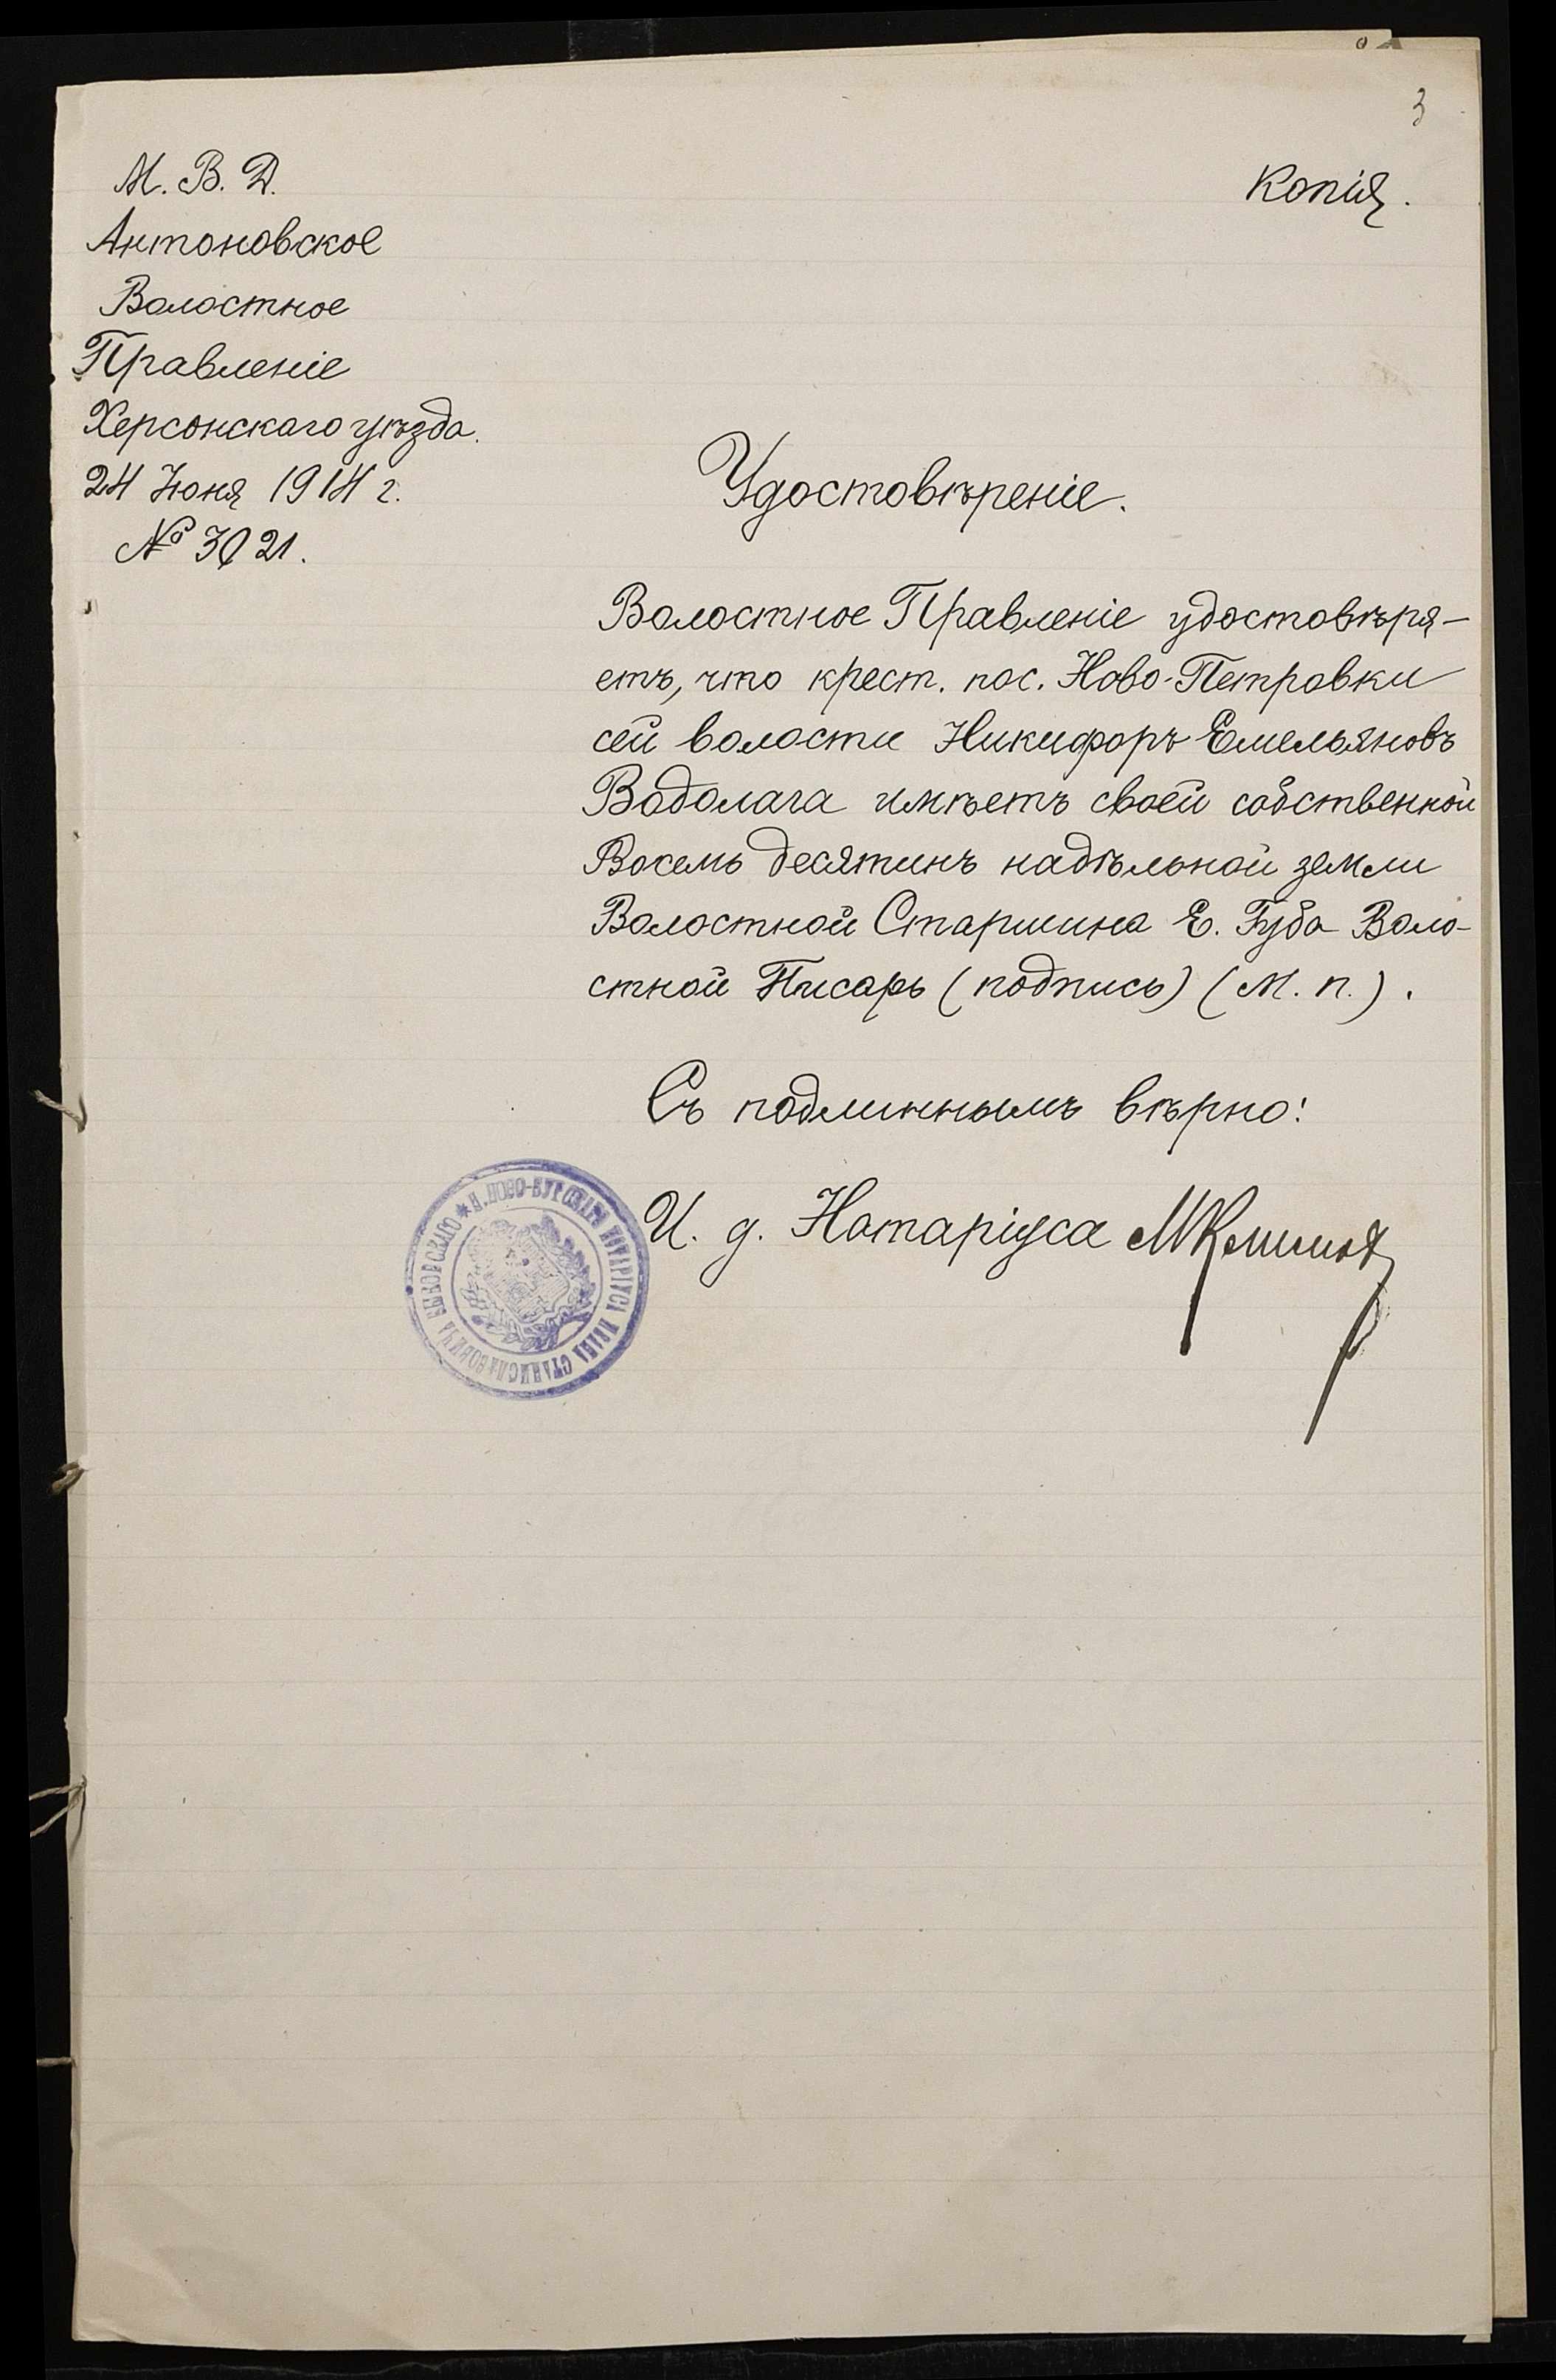 3
М. В. Д.
Антоновское
Волостное
Правленіе
Херсонскаго уѣзда.
24 Іюня 1914 г.
№ 3021.
Копія.
Удостовѣреніе.
Волостное Правленіе удостовѣря-
етъ, что крест. пос. Ново-Петровки
сей волости Никифоръ Емельяновъ
Водолага имѣетъ своей собственной
Восемь десятинъ надѣльной земли
Волостной Старшина Е. Губа Воло-
стной Писарь (подпись) (М. п.).
Съ подлиннымъ вѣрно:
И. д. Нотаріуса